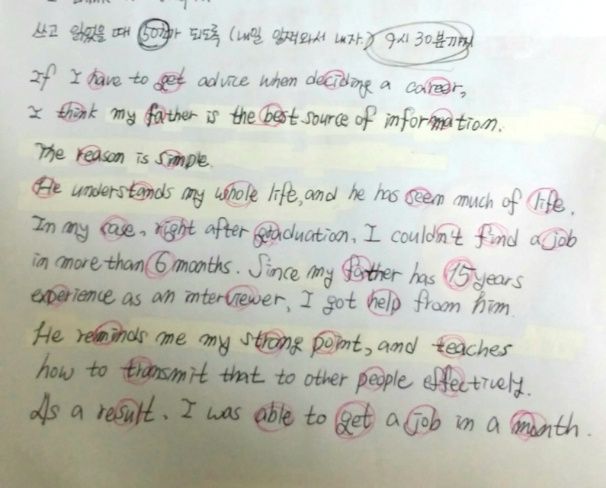 있을 때 50가 되도록 (내일 와서 내자.) 9시 30분까지
If I have to get advice when deciding a career,
I think my father is the best source of information.
The reason is simple.
He understands my whole life, and he has seem much of life.
In my case, right after graduation, I couldn't find a job
in more than 6 months. Since my father has 15 years
experience as an interviewer, I got help from him.
He reminds me my strong point, and teaches
how to transmit that to other people effectively.
As a result, I was able to get a job in a month.